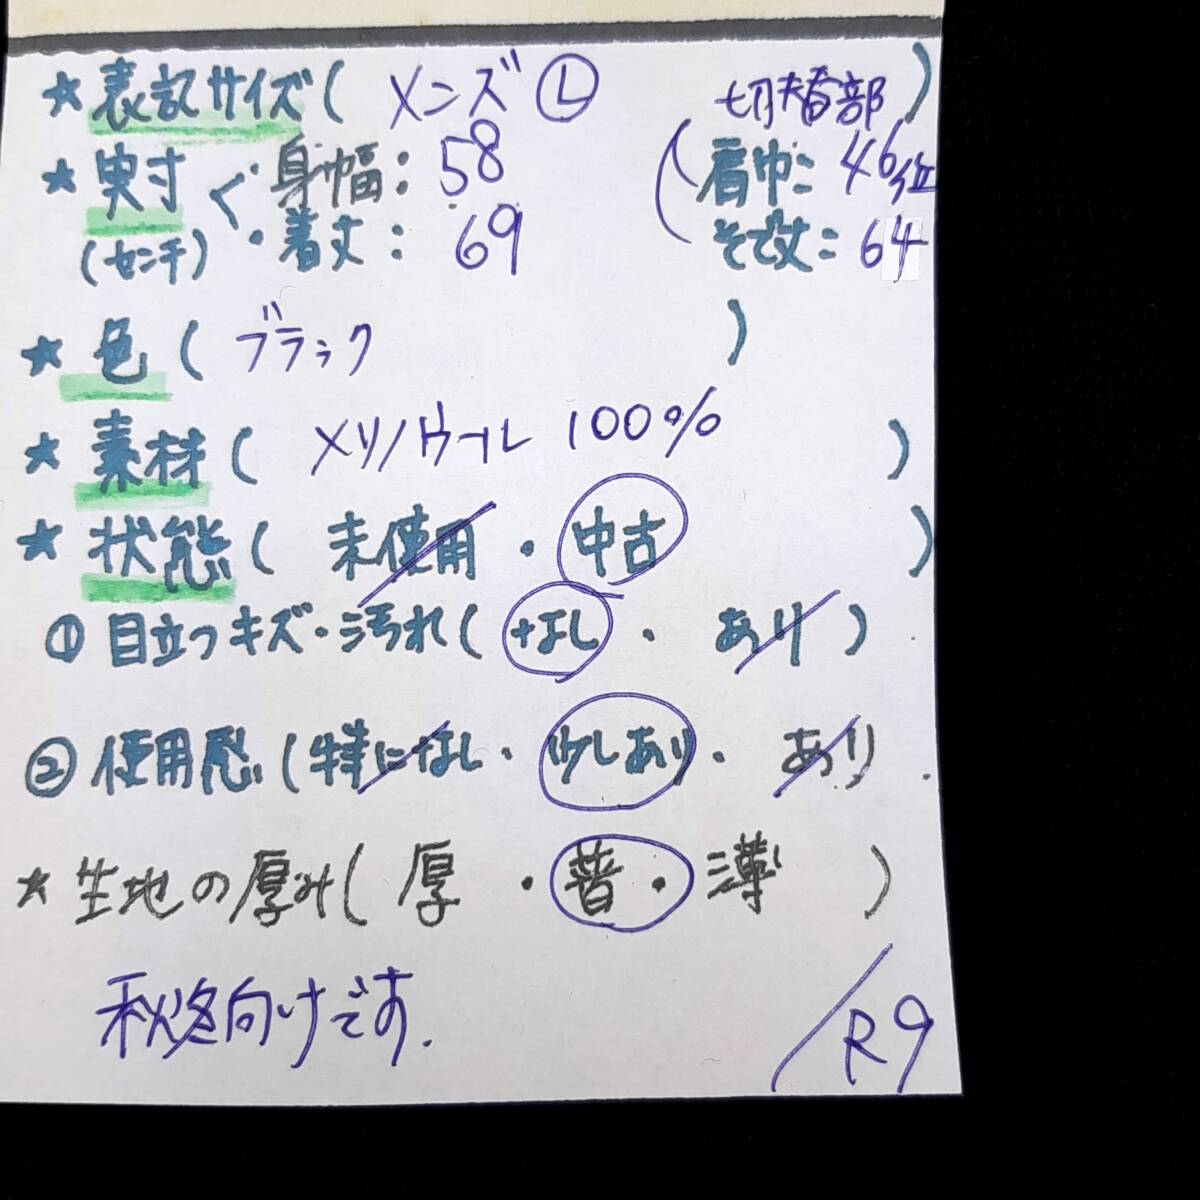 ★表記サイズ(メンズⓁ 切替部)
★実寸く・身幅:58 (肩巾:46位
(センチ) ・着丈:69 そで丈:64
★色(ブラック)
★素材(メリノウール100%)
★状態(未使用・中古)
①目立つキズ・汚れ(なし・あり)
②使用感(特になし・少しあり・あり
★生地の厚み(厚・普・薄)
秋冬向けです.
/R9